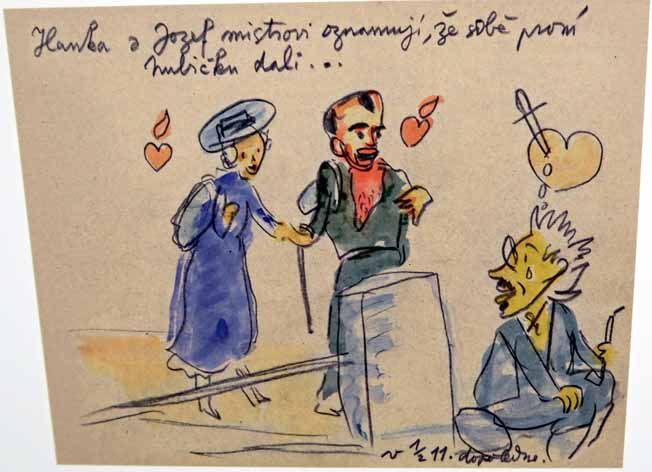 Hanka a Jozef mistrovi oznamují, že sobě první
hubičku dali...
v 1/2 11. dopoledne.